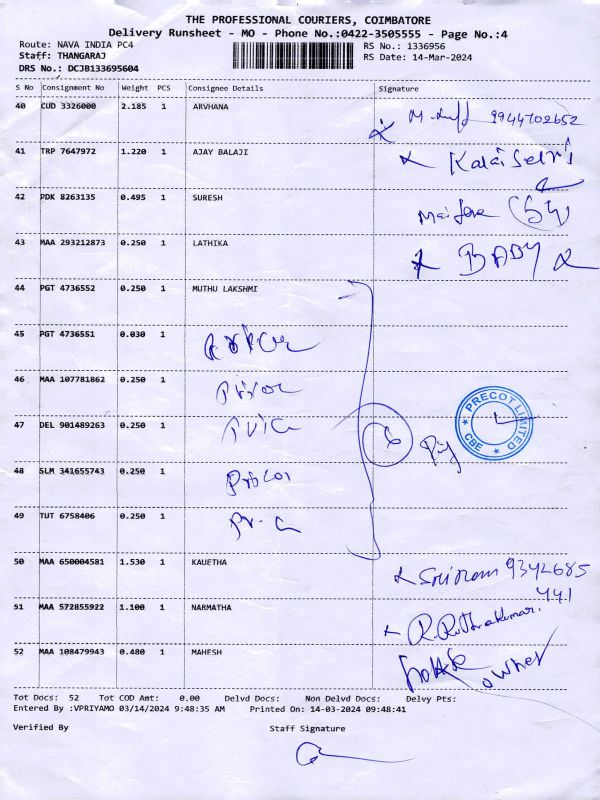 THE PROFESSIONAL COURIERS, COIMBATORE
Delivery Runsheet - MO - Phone No.:0422-3505555 - Page No.:4
Route: NAVA INDIA PC4 RS No.: 1336956
Staff: THANGARAJ RS Date: 14-Mar-2024
DRS No.: DCJB133695604
S No Consignment No Weight PCS Consignee Details Signature
40 CUD 3326000 2.185 1 ARVHANA 9944702652
41 TRP 7647972 1.220 1 AJAY BALAJI Kalai Selvi
42 PDK 8263135 0.495 1 SURESH
43 MAA 293212873 0.250 1 LATHIKA BABY
44 PGT 4736552 0.250 1 MUTHU LAKSHMI
45 PGT 4736551 0.030 1
46 MAA 107781862 0.250 1
47 DEL 901489263 0.250 1 6 PRECOT LIMITED CBE
48 SLM 341655743 0.250 1
49 TUT 6758406 0.250 1
50 MAA 650004581 1.530 1 KAUETHA Sriram 9342685
441
51 MAA 572855922 1.100 1 NARMATHA R. Ruthrakumar.
52 MAA 108479943 0.480 1 MAHESH owner
Tot Docs: 52 Tot COD Amt: 0.00 Delvd Docs: Non Delvd Docs: Delvy Pts:
Entered By :VPRIYAMO 03/14/2024 9:48:35 AM Printed On: 14-03-2024 09:48:41
Verified By Staff Signature